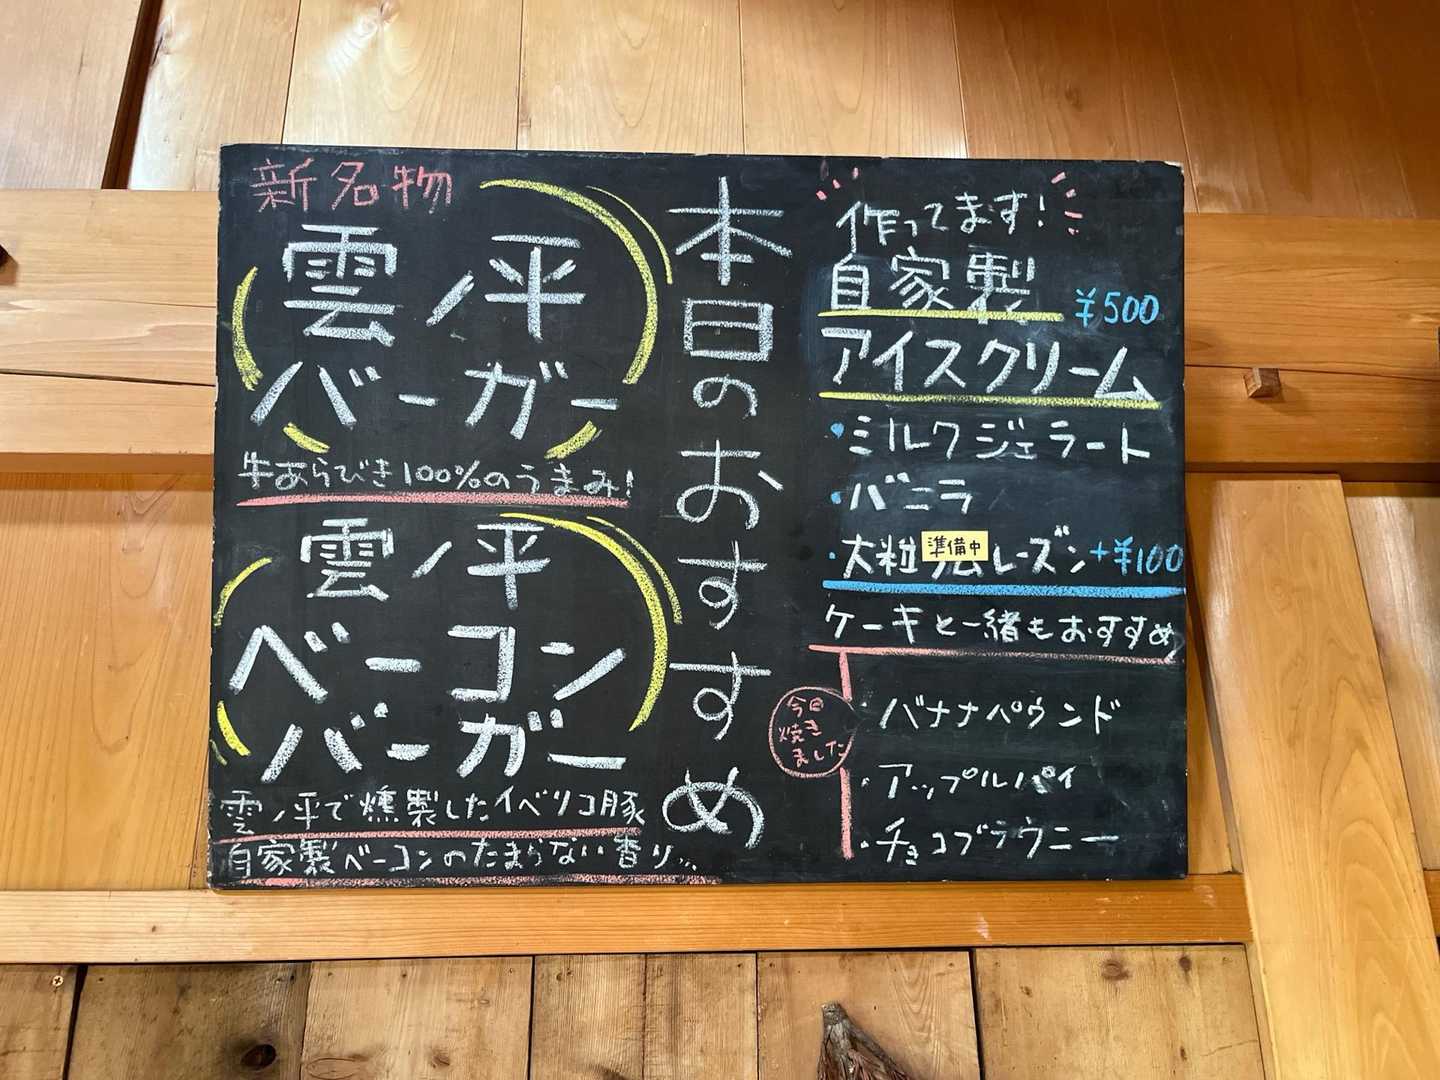 本日のおすすめ
新名物
雲ノ平
バーガー
牛あらびき100%のうまみ!
雲ノ平
ベーコン
バーガー
雲ノ平で燻製したイベリコ豚
自家製ベーコンのたまらない香り…
作ってます!
自家製 ¥500
アイスクリーム
・ミルクジェラート
・バニラ
・大粒ラムレーズン+¥100
準備中
ケーキと一緒もおすすめ
今日
焼き
ました
・バナナパウンド
・アップルパイ
・チョコブラウニー